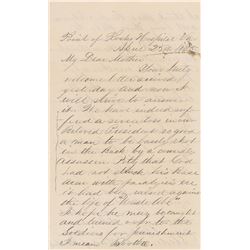 Point of Rocks Hospital Va
April 25th 1865
My Dear Mother
Your truly
welcome letter arrived
yesterday and now I
will strive to answer
it. We have indeed suf-
fered a severe loss in our
beloved President so good
a man to be basely shot
in the Back by a
Assassin. Pity that God
had not struck his base
arm with paralysis ere
it had been raised against
the life of "Uncle Abe"
I hope he may be caught
and turned over to the
Soldiers for punishment
I mean Booth